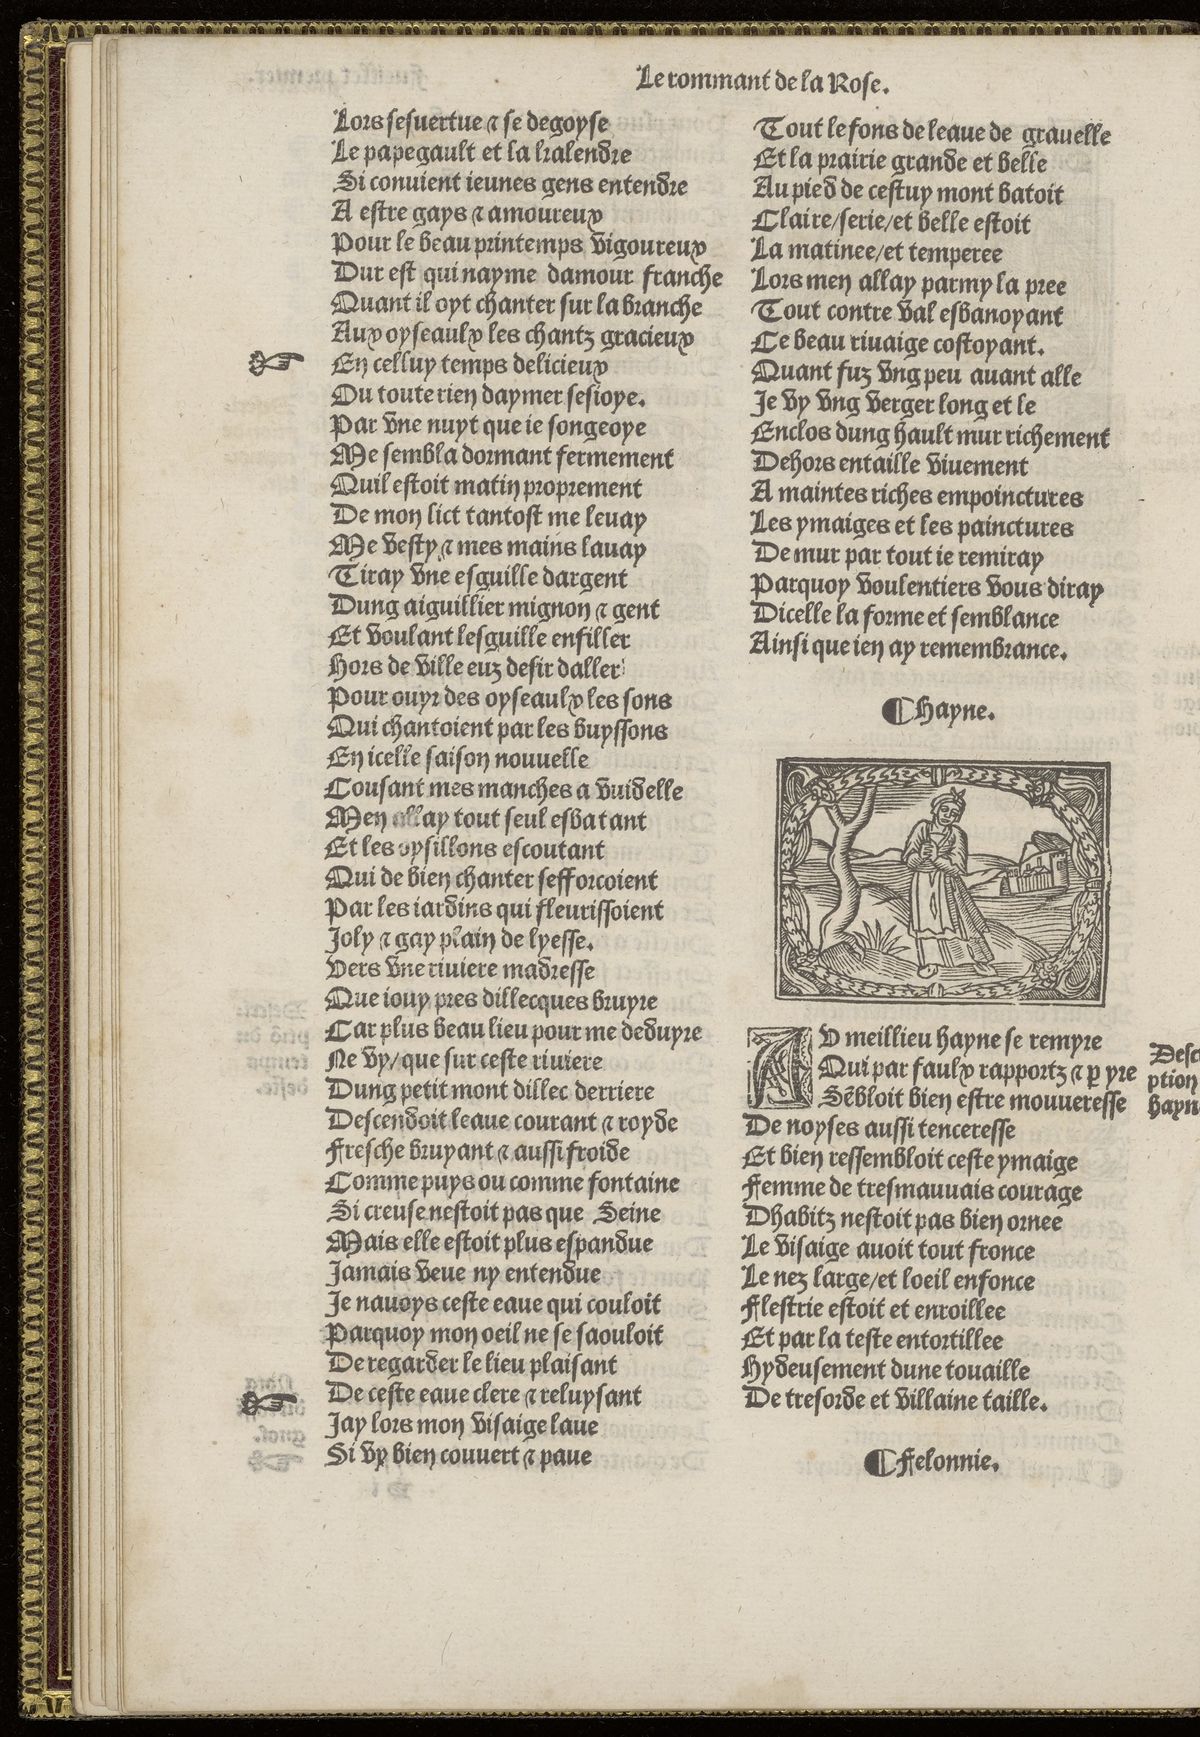 Le rommant de la Rose.
Lors sesuertue ⁊ se degoyse
Le papegault et la kalendre
Si conuient ieunes gens entendre
A estre gays ⁊ amoureux
Pour le beau printemps vigoureux
Dur est qui nayme damour franche
Quant il oyt chanter sur la branche
Aux oyseaulx les chantz gracieux
En celluy temps delicieux
Ou toute rien daymer sesioye.
Par vne nuyt que ie songeoye
Me sembla dormant fermement
Quil estoit matin proprement
De mon lict tantost me leuay
Me vesty ⁊ mes mains lauay
Tiray vne esguille dargent
Dung aiguillier mignon ⁊ gent
Et voulant lesguille enfiller
Hors de ville euz desir daller
Pour ouyr des oyseaulx les sons
Qui chantoient par les buyssons
En icelle saison nouuelle
Cousant mes manches a vuidelle
Men allay tout seul esbatant
Et les oysillons escoutant
Qui de bien chanter sefforcoient
Par les iardins qui fleurissoient
Joly ⁊ gay plain de lyesse.
Vers vne riuiere madresse
Que iouy pres dillecques bruyre
Car plus beau lieu pour me deduyre
Ne vy/que sur ceste riuiere
Dung petit mont dillec derriere
Descendoit leaue courant ⁊ royde
Fresche bruyant ⁊ aussi froide
Comme puys ou comme fontaine
Si creuse nestoit pas que Seine
Mais elle estoit plus espandue
Jamais veue ny entendue
Je nauoys ceste eaue qui couloit
Parquoy mon oeil ne se saouloit
De regarder le lieu plaisant
De ceste eaue clere ⁊ reluysant
Jay lors mon visaige laue
Si vy bien couuert ⁊ paue
Tout le fons de leaue de grauelle
Et la prairie grande et belle
Au pied de cestuy mont batoit
Claire/serie/et belle estoit
La matinee/et temperee
Lors men allay parmy la pree
Tout contre val esbanoyant
Ce beau riuaige costoyant.
Quant fuz vng peu auant alle
Je vy vng verger long et le
Enclos dung hault mur richement
Dehors entaille viuement
A maintes riches empoinctures
Les ymaiges et les painctures
De mur par tout ie remiray
Parquoy voulentiers vous diray
Dicelle la forme et semblance
Ainsi que ien ay remembrance.
¶ Hayne.
AV meillieu hayne se remyre
Qui par faulx rapportz ⁊ ꝑ yre
Sẽbloit bien estre mouueresse
De noyses aussi tenceresse
Et bien ressembloit ceste ymaige
Femme de tresmauuais courage
Dhabitz nestoit pas bien ornee
Le visaige auoit tout fronce
Le nez large/et loeil enfonce
Flestrie estoit et enroillee
Et par la teste entortillee
Hydeusement dune touaille
De tresorde et villaine taille.
Desc
ption
hayn
¶ Felonnie.